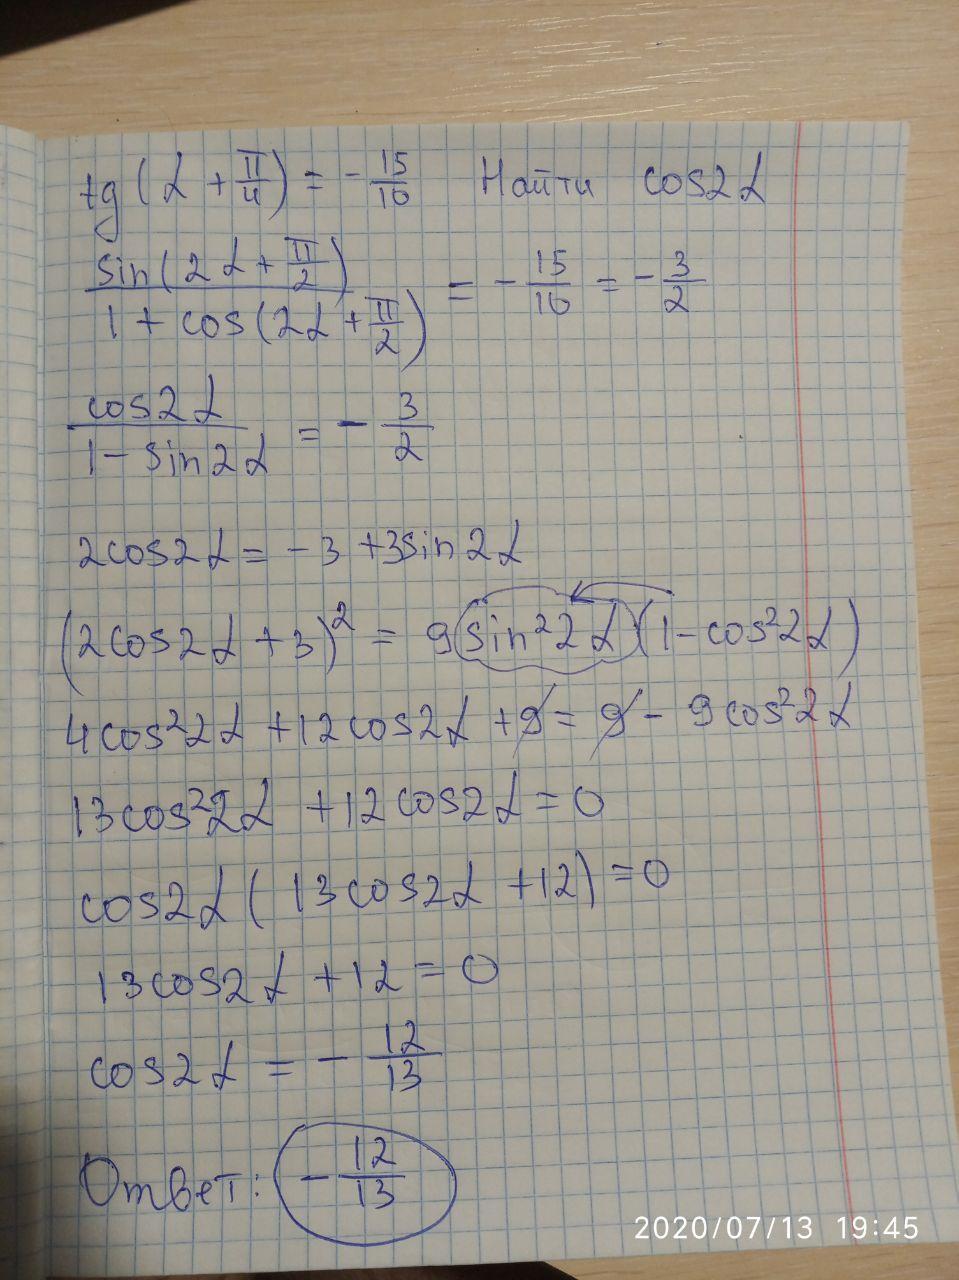 tg(α + π/4) = - 15/10 Найти cos2α
sin(2α + π/2) / 1 + cos(2α + π/2) = - 15/10 = - 3/2
cos2α / 1 - sin2α = - 3/2
2cos2α = - 3 + 3sin2α
(2cos2α + 3)² = 9 sin²2α (1 - cos²2α)
4cos²2α + 12cos2α + 9 = 9 - 9cos²2α
13cos²2α + 12cos2α = 0
cos2α (13cos2α + 12) = 0
13cos2α + 12 = 0
cos2α = - 12/13
Ответ: - 12/13
2020/07/13 19:45